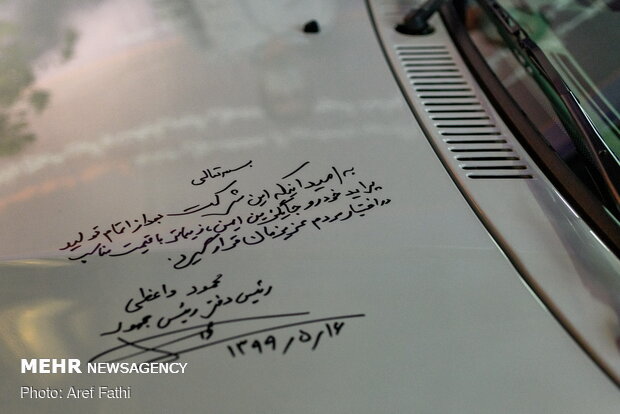 بسمه تعالی
به امید اینکه این شرکت بعد از اتمام تولید
پراید خودرو جایگزین ایمن، زیبا و با قیمت مناسب
در اختیار مردم عزیزمان قرار گیرد.
محمود واعظی
رئیس دفتر رئیس جمهور
۱۳۹۹/۵/۱۶
MEHR NEWSAGENCY
Photo: Aref Fathi